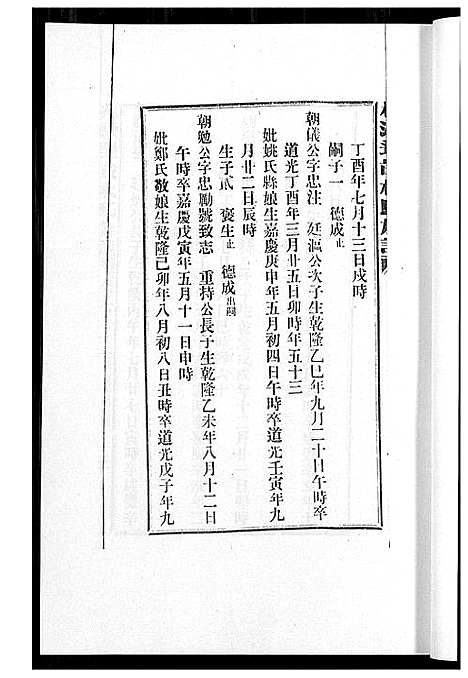 丁酉年七月十三日戌時
嗣子一　德成止
朝儀公字忠注　廷漚公次子生乾隆乙巳年九月二十日午時卒
道光丁酉年三月廿五日卯時年五十三
妣姚氏縣娘生嘉慶庚申年五月初四日午時卒道光壬寅年九
月廿二日辰時
生子貳　褒生止　德成出嗣
朝勉公字忠勵號致志　重持公長子生乾隆乙未年八月十二日
午時卒嘉慶戊寅年五月十一日申時
妣鄭氏敬娘生乾隆己卯年八月初八日丑時卒道光戊子年九